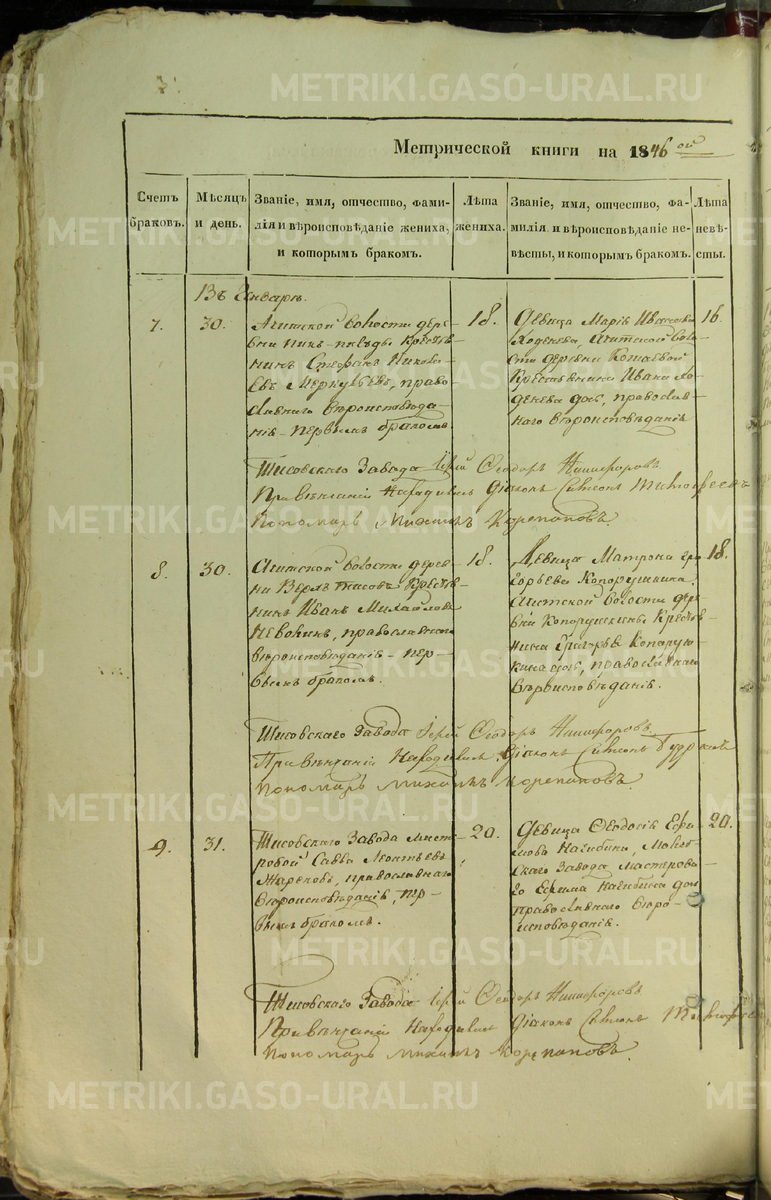 METRIKI.GASO-URAL.RU
Метрической книги на 1846ой
Счетъ браковъ.
Мѣсяцъ и день.
Званіе, имя, отчество, фами-
лія и вѣроисповѣданіе жениха,
и которымъ бракомъ.
Лѣта жениха.
Званіе, имя, отчество, фа-
милія и вѣроисповѣданіе не-
вѣсты, и которымъ бракомъ.
Лѣта невѣ-
сты.
Въ Генварѣ.
7.
30.
Ачитской волости дере-
вни крестья-
нинъ Стефанъ
Меркурьевъ, право-
славнаго вѣроисповѣда-
нія - первымъ бракомъ.
18.
Девица Марія Иванова
Ачитской воло-
сти деревни
Крестьянина Ивана
дочь, православ-
наго вѣроисповѣданія
16.
Тисовскаго Завода Іерей Ѳеодоръ Никифоровъ
При вѣнчаніи находились Діаконъ Симеонъ
Пономарь Михаилъ Корепановъ.
8.
30.
Ачитской волости дерев-
ни Верхъ Тисовъ крестья-
нинъ Иванъ Михайловъ
Неволинъ, православнаго
вѣроисповѣданія - пер-
вымъ бракомъ.
18.
Девица Матрона Гри-
горьева Копорушкина,
Ачитской волости дере-
вни Копорушкиной Крестья-
нина Григорья Копоруш-
кина дочь, православнаго
вѣроисповѣданія.
18.
Тисовскаго Завода Іерей Ѳеодоръ Никифоровъ
При вѣнчаніи находились Діаконъ Симеонъ
Пономарь Михаилъ Корепановъ.
9.
31.
Тисовскаго Завода масте-
ровой Савва Леонтьевъ
православнаго
вѣроисповѣданія, пер-
вымъ бракомъ.
20.
Девица Ѳеодосія Ефи-
мова Нагибина,
скаго Завода мастерова-
го Ефима Нагибина дочь
православнаго вѣро-
исповѣданія.
20.
Тисовскаго Завода Іерей Ѳеодоръ Никифоровъ
При вѣнчаніи находились Діаконъ Симеонъ
Пономарь Михаилъ Корепановъ.